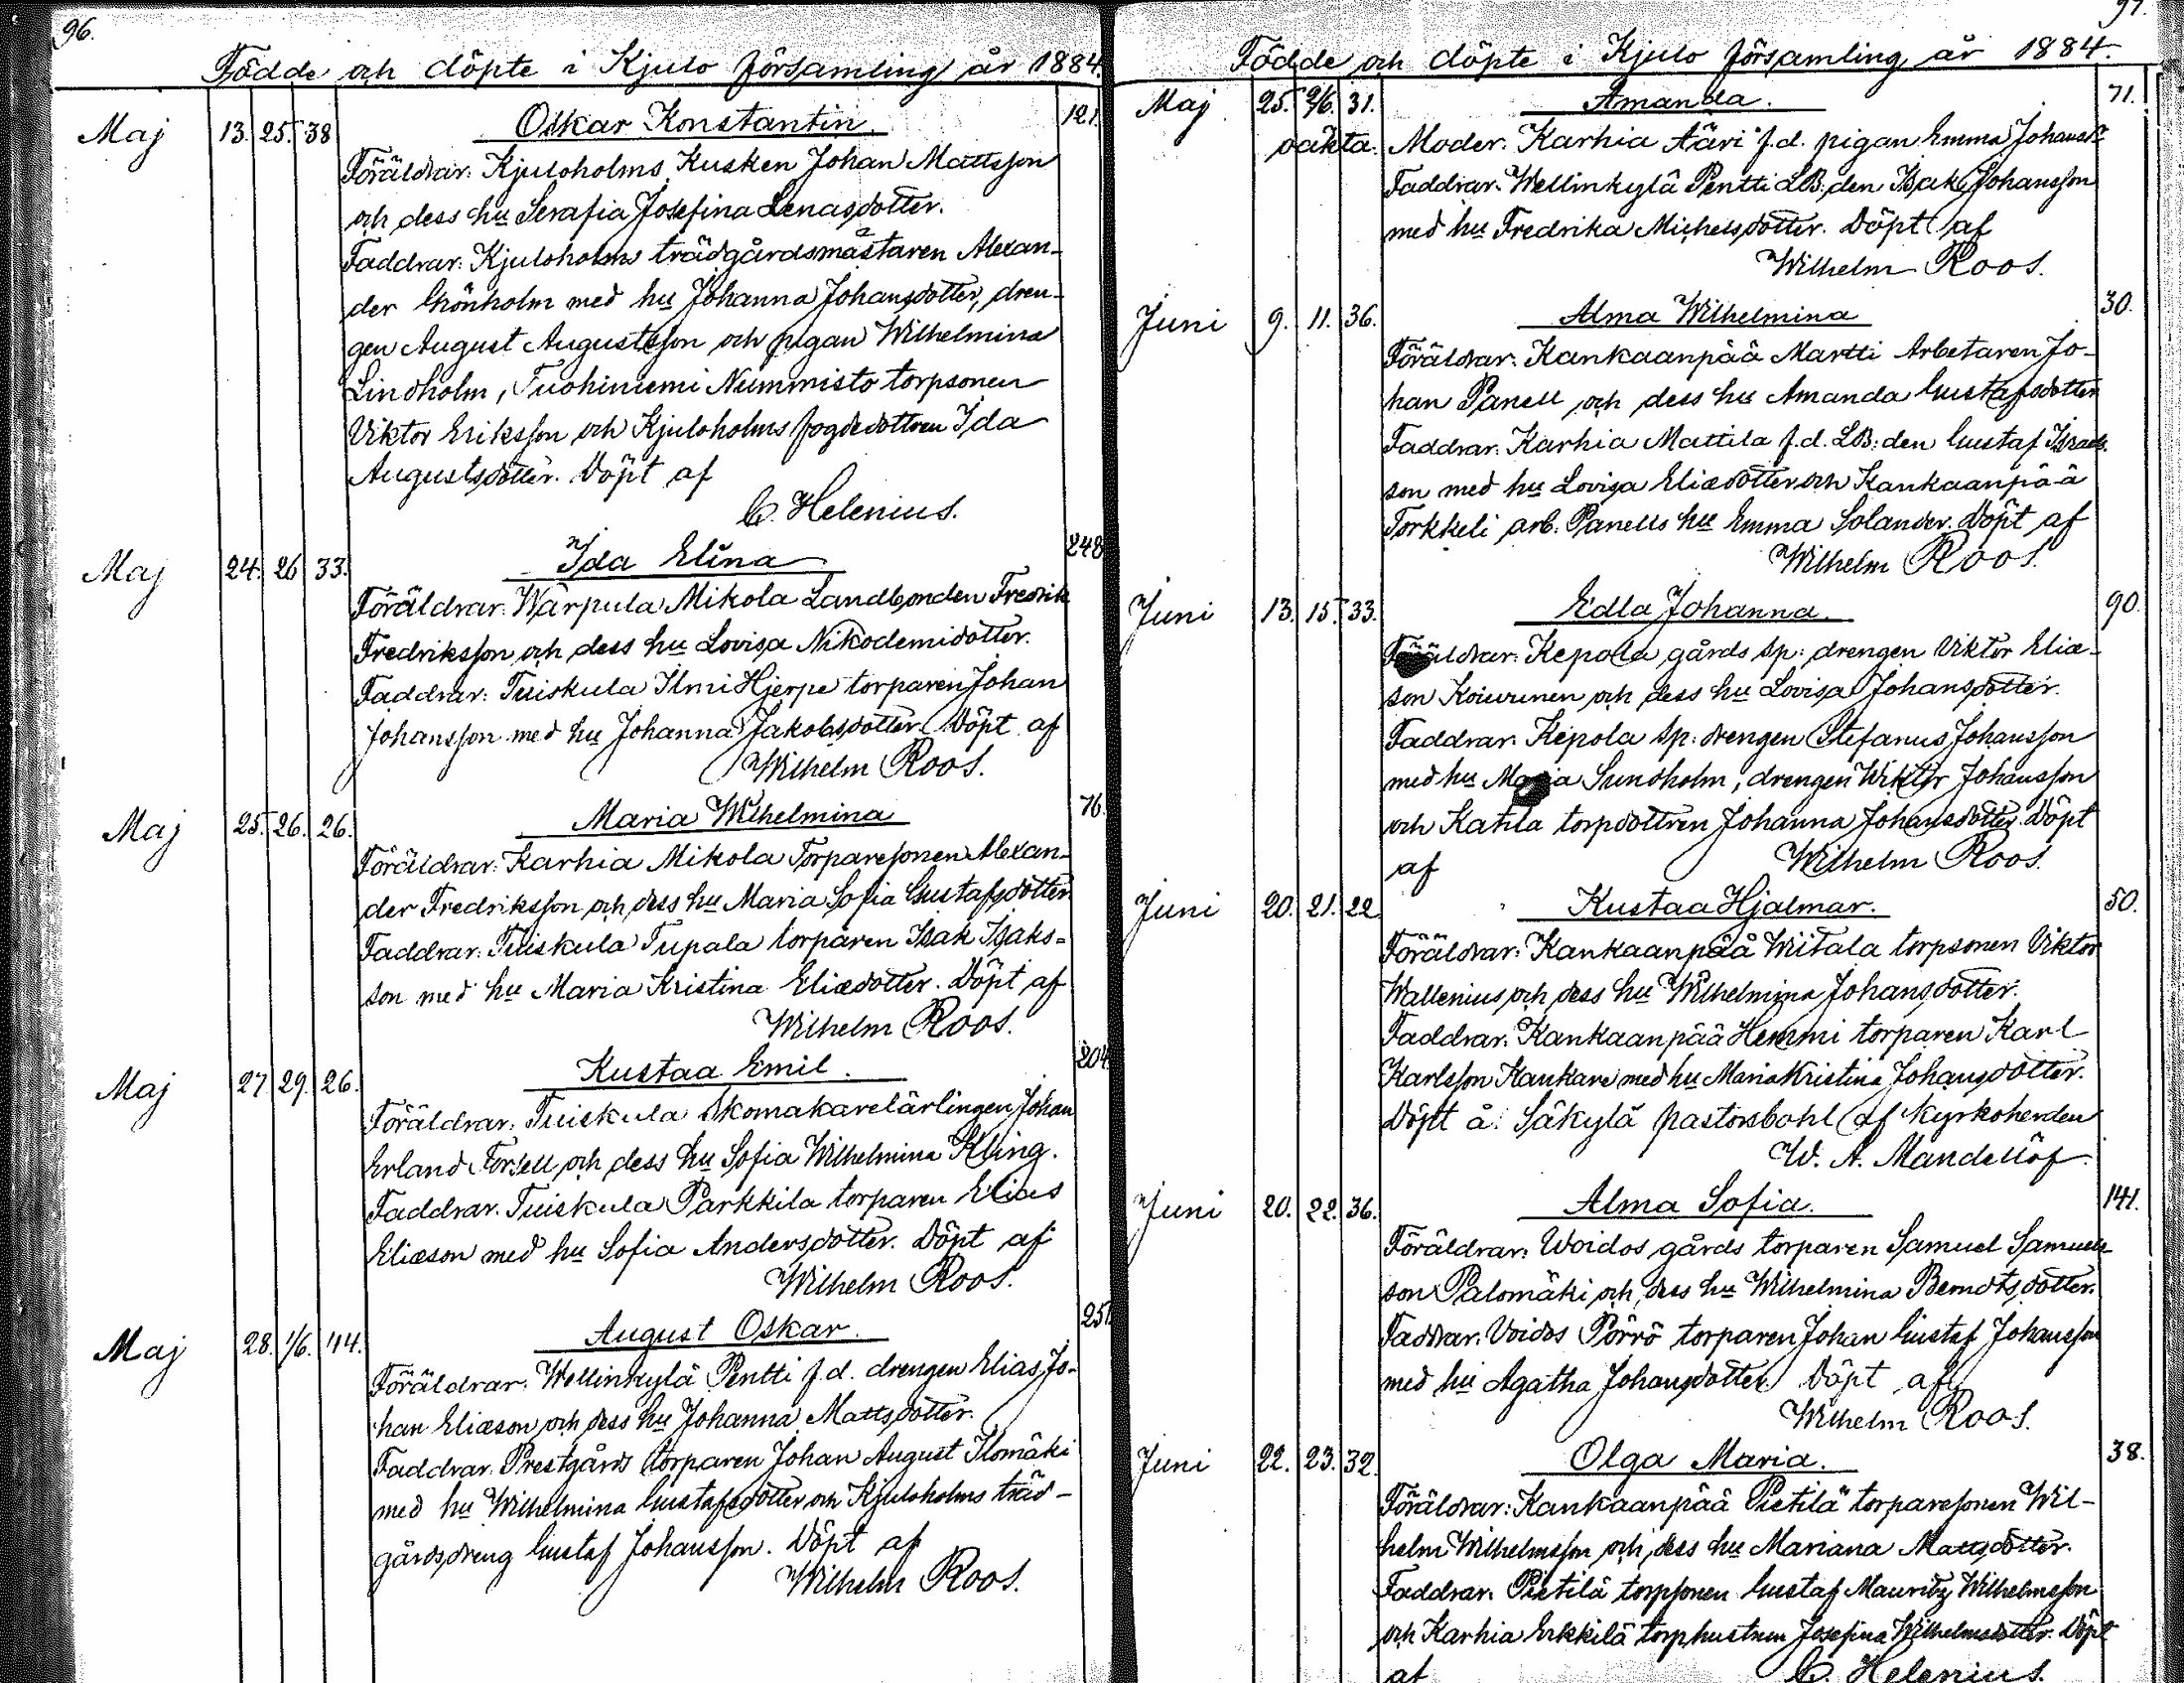 96.
Födde och döpte i Kjulo församling år 1884.
Maj 13. 25. 38 Oskar Konstantin. 121.
Föräldrar: Kjuloholms Kusken Johan Mattsson
och dess hu Serafia Josefina Lenasdotter.
Faddrar: Kjuloholms trädgårdsmästaren Alexan-
der Grönholm med hu Johanna Johansdotter, dren-
gen August Augustsson och pigan Wilhelmina
Lindholm, Tuohiniemi Nummisto torpsonen
Viktor Eriksson och Kjuloholms fogdedottren Ida
Augustsdotter. Döpt af
C. Helenius.
Maj 24. 26 33. Ida Elina 248
Föräldrar: Wärpula Mikola Landbonden Fredrik
Fredriksson och dess hu Lovisa Nikodemidotter.
Faddrar: Tuiskula Ilmi Hjerpe torparen Johan
Johansson med hu Johanna Jakobsdotter. Döpt af
Wilhelm Roos.
Maj 25. 26. 26. Maria Wilhelmina 76.
Föräldrar: Karhia Mikola Torparesonen Alexan-
der Fredriksson och dess hu Maria Sofia Gustafsdotter
Faddrar: Tuiskula Tupala torparen Isak Isaks-
son med hu Maria Kristina Eliædotter. Döpt af
Wilhelm Roos.
Maj 27. 29. 26. Kustaa Emil. 204
Föräldrar: Tuiskula Skomakarelärlingen Johan
Erland Forsell och dess hu Sofia Wilhelmina Kling.
Faddrar: Tuiskula Parkkila torparen Elias
Eliæson med hu Sofia Andersdotter. Döpt af
Wilhelm Roos.
Maj 28. 1/6. 44. August Oskar. 251
Föräldrar: Wellinkylä Pentti f.d. drengen Elias Jo-
han Eliæson och dess hu Johanna Mattsdotter.
Faddrar: Prestgårds torparen Johan August Ilomäki
med hu Wilhelmina Gustafsdotter och Kjuloholms träd-
gårdsdreng Gustaf Johansson. Döpt af
Wilhelm Roos.
97.
Födde och döpte i Kjulo församling år 1884.
Maj 25. 2/6. 31. Amanda. 71.
oäkta. Moder. Karhia Ääri f.d. pigan Emma Johansdr
Faddrar: Wellinkylä Pentti LB:den Isak Johansson
med hu Fredrika Michelsdotter. Döpt af
Wilhelm Roos.
Juni 9. 11. 36. Alma Wilhelmina 30.
Föräldrar: Kankaanpää Martti Arbetaren Jo-
han Panell och dess hu Amanda Gustafsdotter
Faddrar: Karhia Mattila f.d. LB:den Gustaf Israels-
son med hu Lovisa Eliædotter och Kankaanpää
Torkkeli arb. Panells hu Emma Solander. Döpt af
Wilhelm Roos.
Juni 13. 15. 33. Edla Johanna. 90.
Föräldrar: Kepola gårds sp: drengen Viktor Eliæ-
son Koivunen och dess hu Lovisa Johansdotter.
Faddrar: Kepola sp: drengen Stefanus Johansson
med hu Maria Sundholm, drengen Wiktor Johansson
och Katila torpdottren Johanna Johansdotter. Döpt
af Wilhelm Roos.
Juni 20. 21. 22 Kustaa Hjalmar. 50.
Föräldrar: Kankaanpää Wiitala torpsonen Viktor
Wallenius och dess hu Wilhelmina Johansdotter.
Faddrar: Kankaanpää Hemmi torparen Karl
Karlsson Kankare med hu Maria Kristina Johansdotter.
Döpt å Säkylä pastorsbohl af Kyrkoherden
W. A. Mandellöf.
Juni 20. 22. 36. Alma Sofia. 141.
Föräldrar: Woidos gårds torparen Samuel Samuels-
son Palomäki och dess hu Wilhelmina Berndtsdotter.
Faddrar: Voidos Pörrö torparen Johan Gustaf Johansson
med hu Agatha Johansdotter. Döpt af
Wilhelm Roos.
Juni 22. 23. 32. Olga Maria. 38.
Föräldrar: Kankaanpää Pietilä torparesonen Wil-
helm Wilhelmsson och dess hu Mariana Mattsdotter.
Faddrar: Pietilä torpsonen Gustaf Mauritz Wilhelmsson
och Karhia Erkkilä torphustrun Josefina Wilhelmsdotter. Döpt
af C. Helenius.